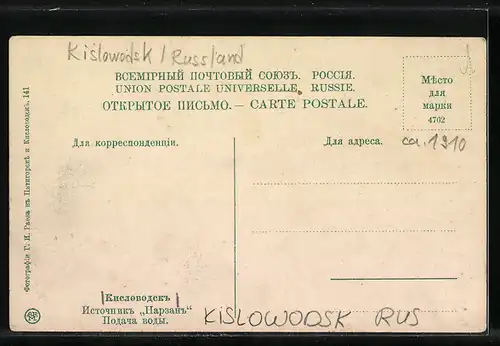 Kislowodsk / Russland
ВСЕМІРНЫЙ ПОЧТОВЫЙ СОЮЗЪ. РОССІЯ.
UNION POSTALE UNIVERSELLE, RUSSIE.
ОТКРЫТОЕ ПИСЬМО. — CARTE POSTALE.
Мѣсто
для
марки
4702
Для корреспонденціи.
Для адреса.
ca. 1910
Фотографія Г. И. Раева въ Пятигорскѣ и Кисловодскѣ. 141
Кисловодскъ
Источникъ „Нарзанъ“
Подача воды.
KISLOWODSK RUS